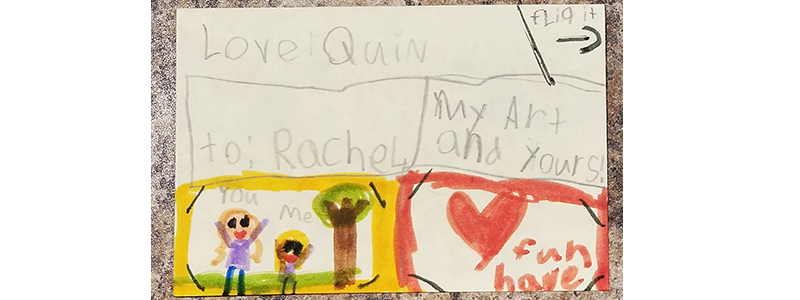 Love: Quin
fLiq it
to: Rachel,
My Art
and yours!
You
Me
fun
have